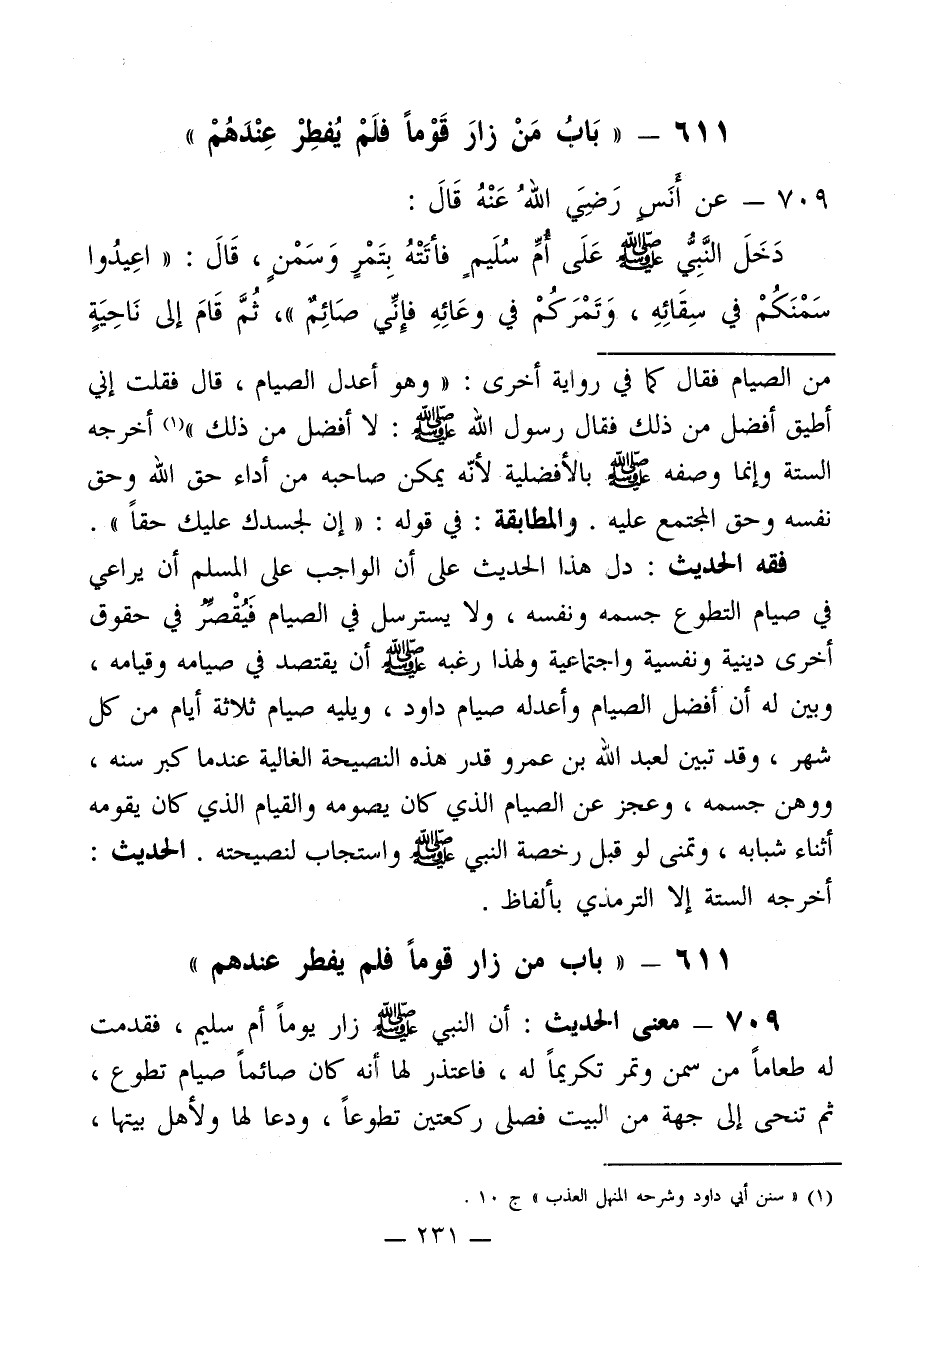 ٦١١ – « بَابُ مَنْ زارَ قَوْماً فلَمْ يُفطِرْ عِنْدَهُمْ »
٧٠٩ – عن أَنَسٍ رَضِيَ اللهُ عَنْهُ قَالَ :
دَخَلَ النَّبِيُّ ﷺ عَلَى أُمِّ سُلَيمٍ فأتَتْهُ بِتَمْرٍ وَسَمْنٍ ، قَالَ : « اعِيدُوا
سَمْنَكُمْ في سِقَائِهِ ، وَتَمْرَكُمْ في وعَائِهِ فإنِّي صَائِمٌ »، ثُمَّ قَامَ إلى نَاحِيَةٍ
من الصيام فقال كما في رواية أخرى : « وهو أعدل الصيام ، قال فقلت إني
أطيق أفضل من ذلك فقال رسول الله ﷺ : لا أفضل من ذلك »(١) أخرجه
الستة وإنما وصفه ﷺ بالأفضلية لأنّه يمكن صاحبه من أداء حق الله وحق
نفسه وحق المجتمع عليه . والمطابقة : في قوله : « إن لجسدك عليك حقاً » .
فقه الحديث : دل هذا الحديث على أن الواجب على المسلم أن يراعي
في صيام التطوع جسمه ونفسه ، ولا يسترسل في الصيام فَيُقْصِّرُ في حقوق
أخرى دينية ونفسية واجتماعية ولهذا رغبه ﷺ أن يقتصد في صيامه وقيامه ،
وبين له أن أفضل الصيام وأعدله صيام داود ، ويليه صيام ثلاثة أيام من كل
شهر ، وقد تبين لعبد الله بن عمرو قدر هذه النصيحة الغالية عندما كبر سنه ،
ووهن جسمه ، وعجز عن الصيام الذي كان يصومه والقيام الذي كان يقومه
أثناء شبابه ، وتمنى لو قبل رخصة النبي ﷺ واستجاب لنصيحته . الحديث :
أخرجه الستة إلا الترمذي بألفاظ .
٦١١ – « باب من زار قوماً فلم يفطر عندهم »
٧٠٩ – معنى الحديث : أن النبي ﷺ زار يوماً أم سليم ، فقدمت
له طعاماً من سمن وتمر تكريماً له ، فاعتذر لها أنه كان صائماً صيام تطوع ،
ثم تنحى إلى جهة من البيت فصلى ركعتين تطوعاً ، ودعا لها ولأهل بيتها ،
(١) « سنن أبي داود وشرحه المنهل العذب » ج ١٠ .
– ٢٣١ –